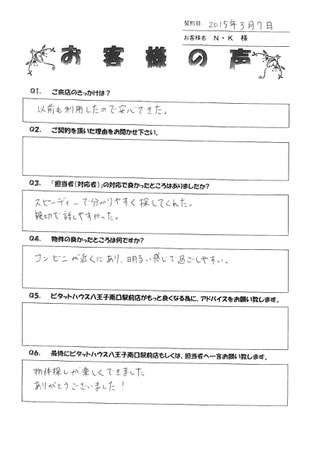 契約日 2015年3月7日
お客様名 N・K 様
お客様の声
Q1. ご来店のきっかけは?
以前も利用したので安心できた。
Q2. ご契約を頂いた理由をお聞かせ下さい。
Q3. 「担当者(対応者)」の対応で良かったところはありましたか?
スピーディーで分かりやすく探してくれた。
親切で話しやすかった。
Q4. 物件の良かったところは何ですか?
コンビニが近くにあり、明るい感じで過ごしやすい。
Q5. ピタットハウス八王子南口駅前店がもっと良くなる為に、アドバイスをお願い致します。
Q6. 最後にピタットハウス八王子南口駅前店もしくは、担当者へ一言お願い致します。
物件探しが楽しくできました。
ありがとうございました!